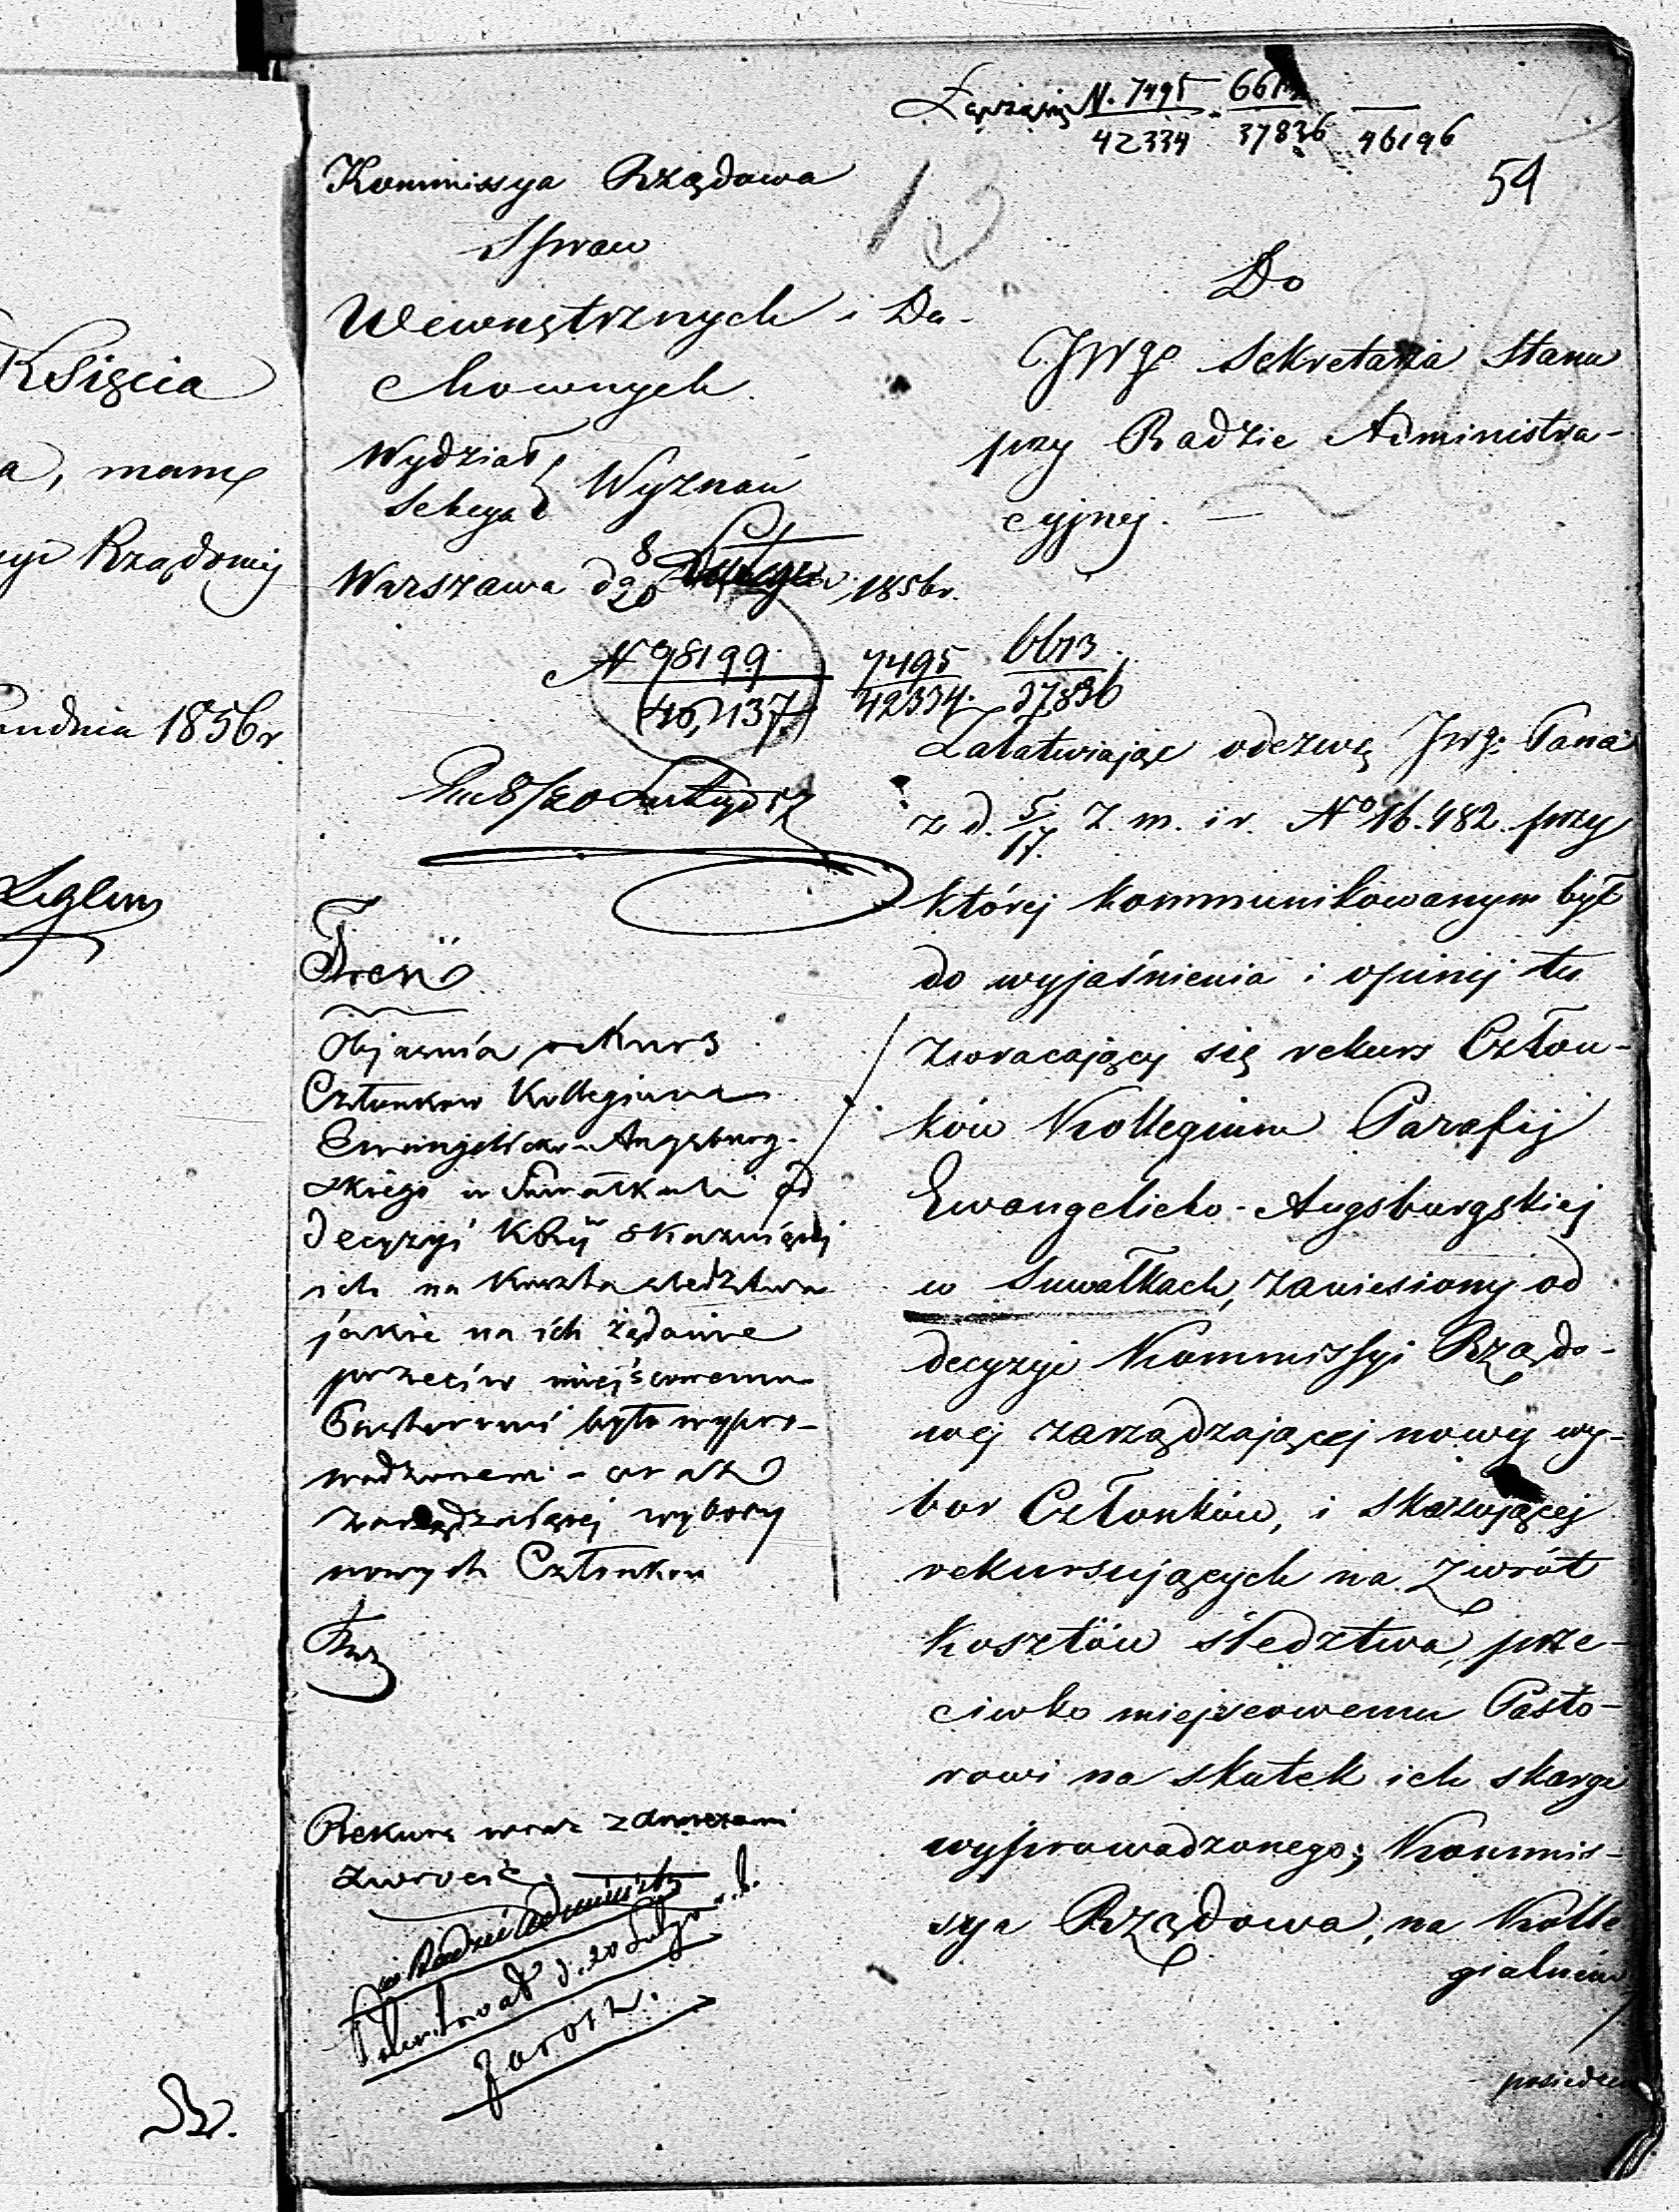 Księcia
a, mam
Rządowej
Grudnia 1856 r
N. 7495 6613
42334 37836 46196
54
13
Kommissya Rządowa
Spraw
Wewnętrznych i Du-
chownych.
Wydział
Sekcya } Wyznań
Warszawa d 8/20 1856 r.
N 98199 7495 6673
46,137 42334 37836
Do
JWgo Sekretarza Stanu
przy Radzie Administra-
cyjnej.
Załatwiając odezwę JWgo Pana
z d. 5/17 z. m. i r. No 16.482 przy
której kommunikowanym był
do wyjaśnienia i opinij tu
zwracający się rekurs Człon-
ków Kollegium Parafij
Ewangelicko-Augsburgskiej
w Suwałkach, zaniesiony od
decyzyi Kommissyi Rządo-
wej zarządzającej nowy wy-
bor Członków, i skazującej
rekursujących na zwrót
kosztów śledztwa, prze-
ciwko miejscowemu Pasto-
rowi na skutek ich skargi
wyprowadzonego; Kommis-
sya Rządowa, na Kolle
gialném
posiedzen
Treść
Objaśnia rekurs
Członków Kollegium
Ewangelicko-Augsburg-
skiego w Suwałkach od
decyzyi KRjj skazującej
ich na koszta śledztwa
jakie na ich żądanie
przeciw miejscowemu
Pastorowi było wypro-
wadzonem - oraz
zarządzającej wybory
nowych Członków
Rekurs wraz z
zwrócić.
w Radzie
d. 20